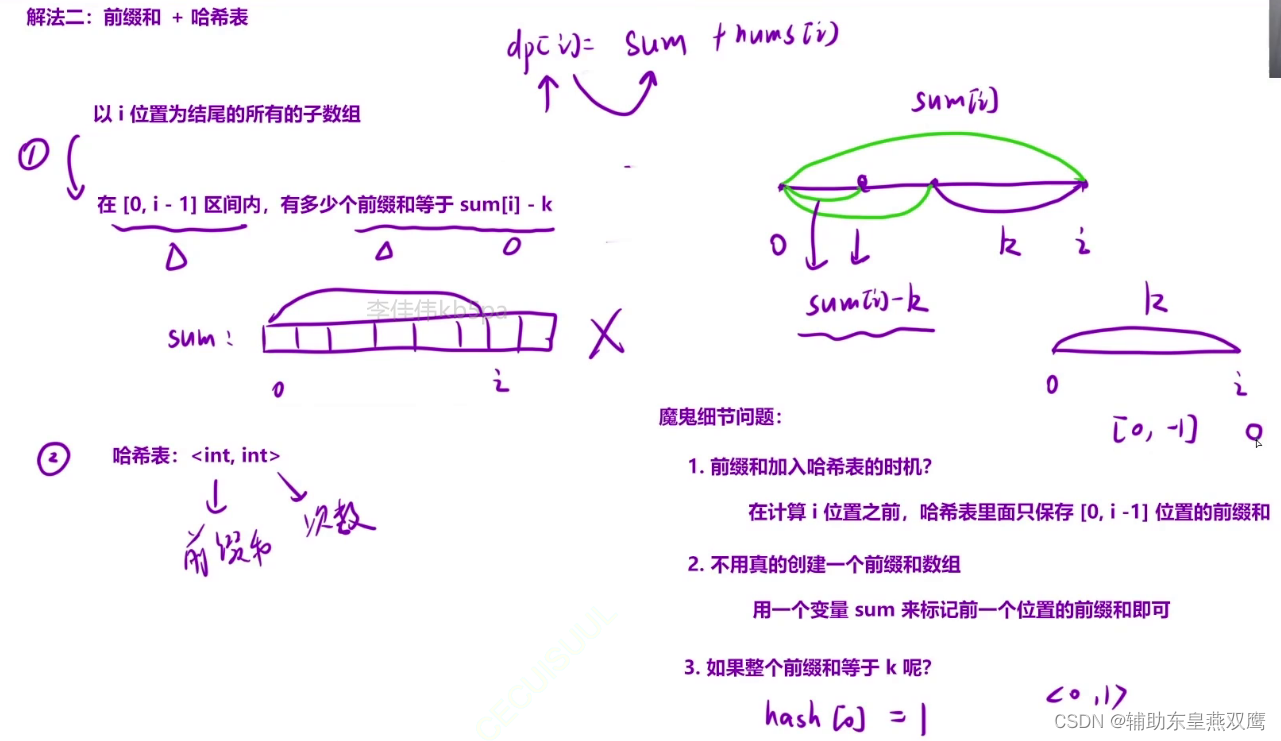 解法二：前缀和 + 哈希表
dp[i]= sum +nums[i]
以 i 位置为结尾的所有的子数组
①
在 [0, i - 1] 区间内，有多少个前缀和等于 sum[i] - k
sum[i]
0 k i
sum[i]-k
李佳伟kb5pa
sum：
0 i
k
0 i
[0, -1] 0
② 哈希表：<int, int>
前缀和 次数
魔鬼细节问题：
1. 前缀和加入哈希表的时机？
在计算 i 位置之前，哈希表里面只保存 [0, i -1] 位置的前缀和
2. 不用真的创建一个前缀和数组
用一个变量 sum 来标记前一个位置的前缀和即可
3. 如果整个前缀和等于 k 呢？
hash[0] = 1 <0,1>
CSDN @辅助东皇燕双鹰